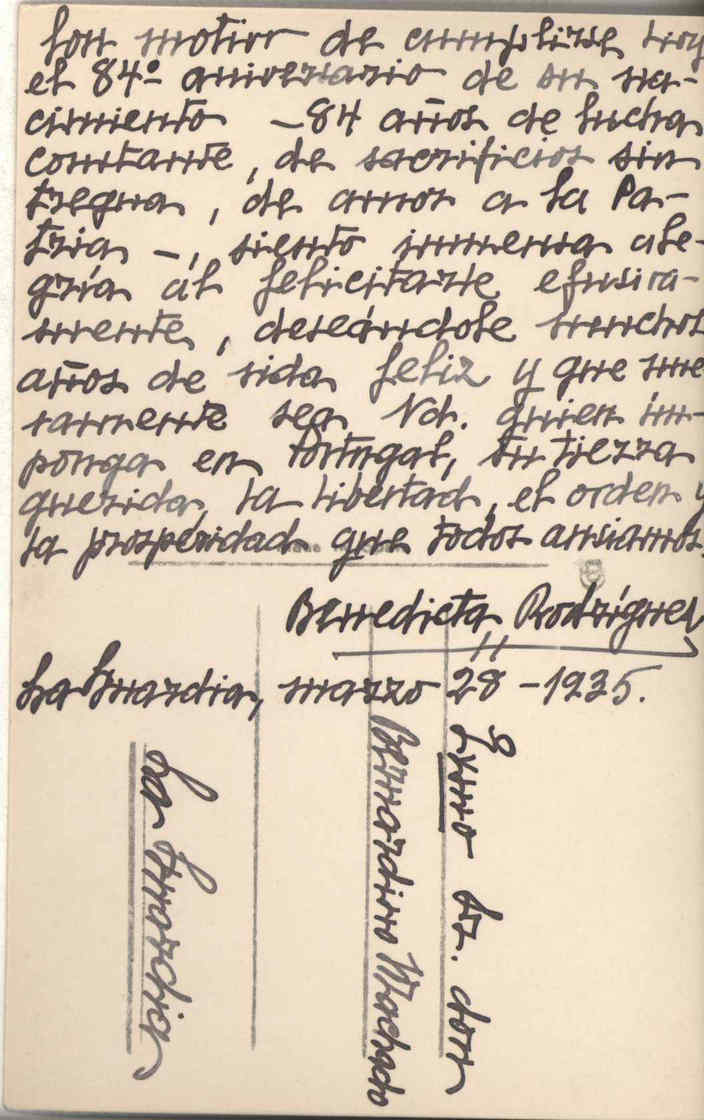 Con motivo de cumplirse hoy
el 84º aniversario de su na-
cimiento -84 años de lucha
constante, de sacrificios sin
tregua, de amor a la Pa-
tria -, siento inmensa ale-
gría al felicitarle efusiva-
mente, deseándole muchos
años de vida feliz y que nue-
vamente sea Vd. quien im-
ponga en Portugal, su tierra
querida, la libertad, el orden y
la prosperidad que todos ansiamos.
Benedicta Rodríguez
La Guardia, marzo 28-1935.
Exmo Sr. don
Bernardino Machado
La Guardia